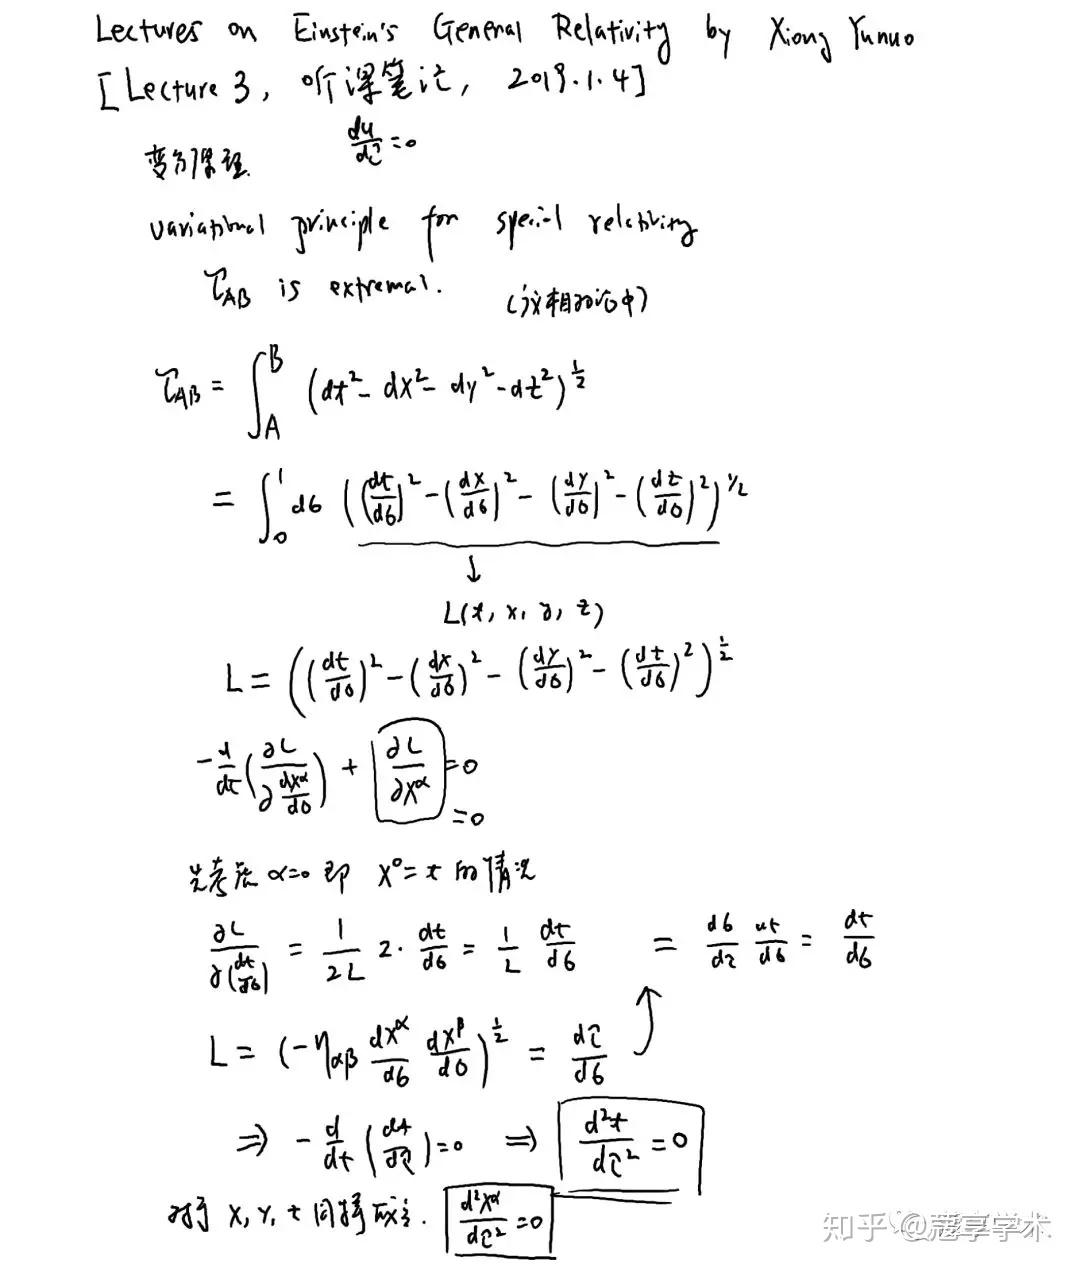 Lectures on Einstein's General Relativity by Xiong Yunuo
[Lecture 3, 听课笔记, 2019.1.4]
变分原理 du/dτ=0
variational principle for special relativity
τ_AB is extremal. (狭相对论中)
τ_AB = ∫_A^B (dt²-dx²-dy²-dz²)^½
= ∫_0^1 dσ ((dt/dσ)²-(dx/dσ)²-(dy/dσ)²-(dz/dσ)²)^1/2
↓
L(t, x, y, z)
L = ((dt/dσ)²-(dx/dσ)²-(dy/dσ)²-(dz/dσ)²)^½
-d/dt(∂L/∂ dx^α/dσ) + ∂L/∂x^α =0
=0
先考虑 α=0 即 x⁰=t 的情况
∂L/∂(dt/dσ) = 1/2L 2·dt/dσ = 1/L dt/dσ = dσ/dτ dt/dσ = dt/dσ
L = (-η_αβ dx^α/dσ dx^β/dσ)^½ = dτ/dσ
⇒ -d/dt(dt/dτ)=0 ⇒ d²t/dτ²=0
对于 x, y, z 同样成立. d²x^α/dτ²=0
知乎 @蔻享学术